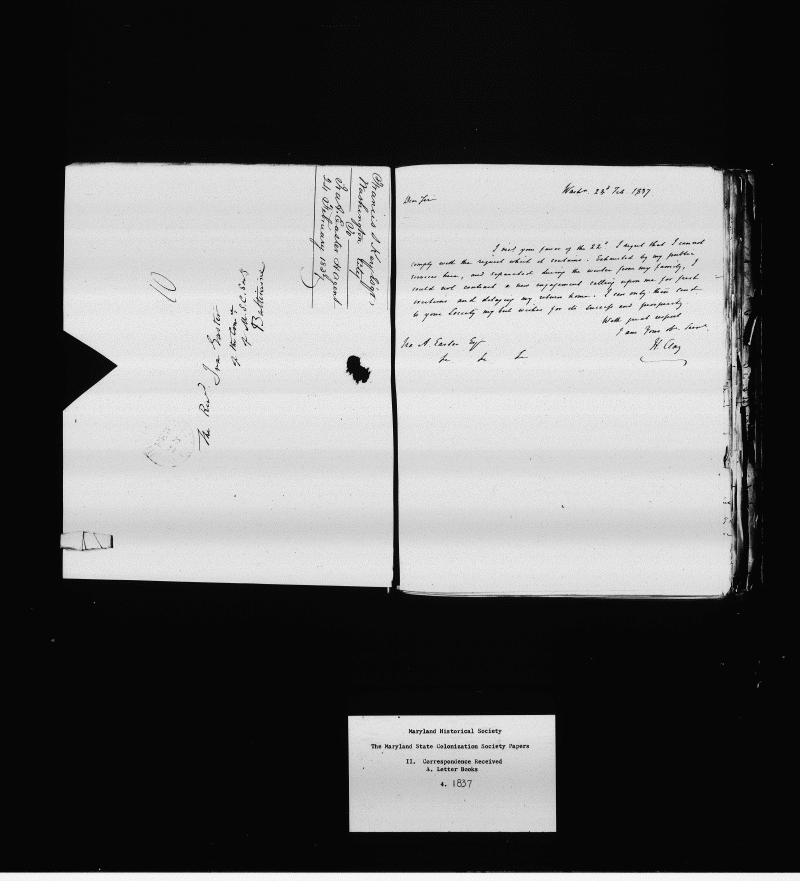 Francis S Key Esqr.
Washington City
To
Ira A. Easter Agent
24 February 1837
10
The Revd Ira Easter
of the Comee
of M. S. C. Socy
Baltimore
Washn. 23d Feb. 1837
Dear Sir
I recd your favor of the 22d. I regret that I cannot
comply with the request which it contains. Exhausted by my public
services here, and separated during the winter from my family, I
could not contract a new engagement calling upon me for fresh
exertions and delaying my return home. I can only then send
to your Society my best wishes for its success and prosperity.
With great respect
I am Your ob. Serv.
H Clay
Ira A. Easter Esq
Maryland Historical Society
The Maryland State Colonization Society Papers
II. Correspondence Received
A. Letter Books
4. 1837